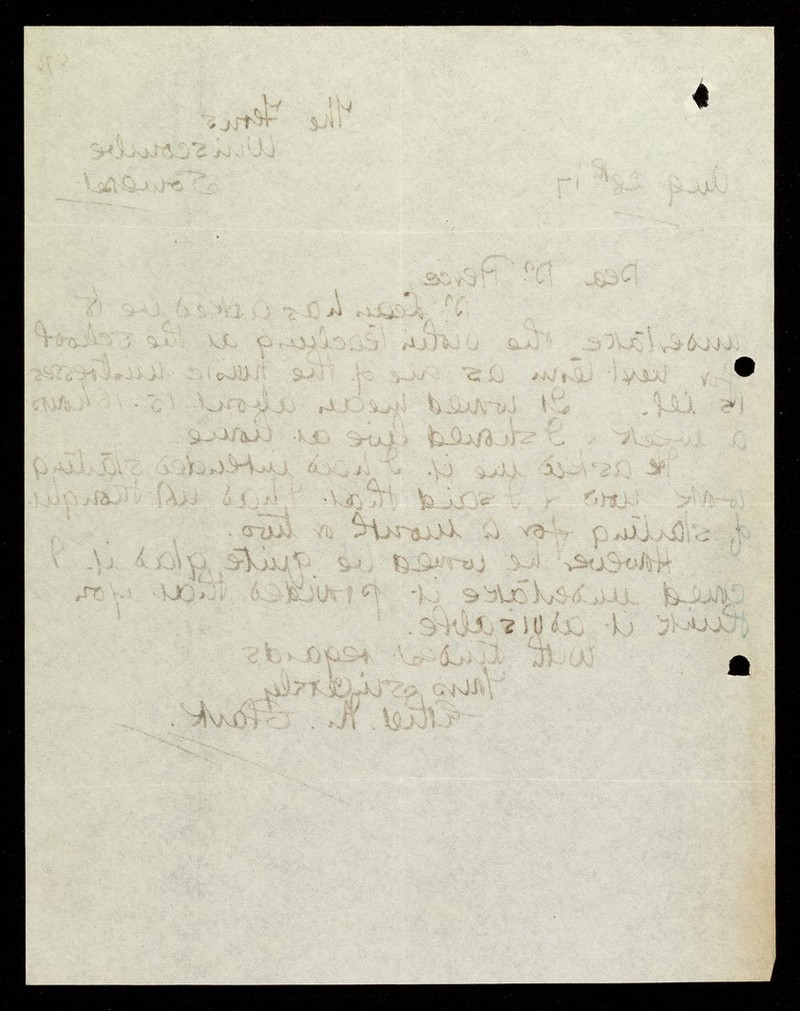 The Ferns
Winscombe
Somerset
Aug 28th 17
Dear Dr Pierce,
Dr Lean has asked me to
undertake the violin teaching at the school
for next term as one of the music mistresses
is ill. It would mean about 15-16 hours
a week & I should live at home
He asked me if I had intended starting
work now & I said that I had not thought
of starting for a month or two.
However he would be quite glad if I
could undertake it provided that you
think it advisable.
With kindest regards
Yours sincerely
Ethel M. Clark.